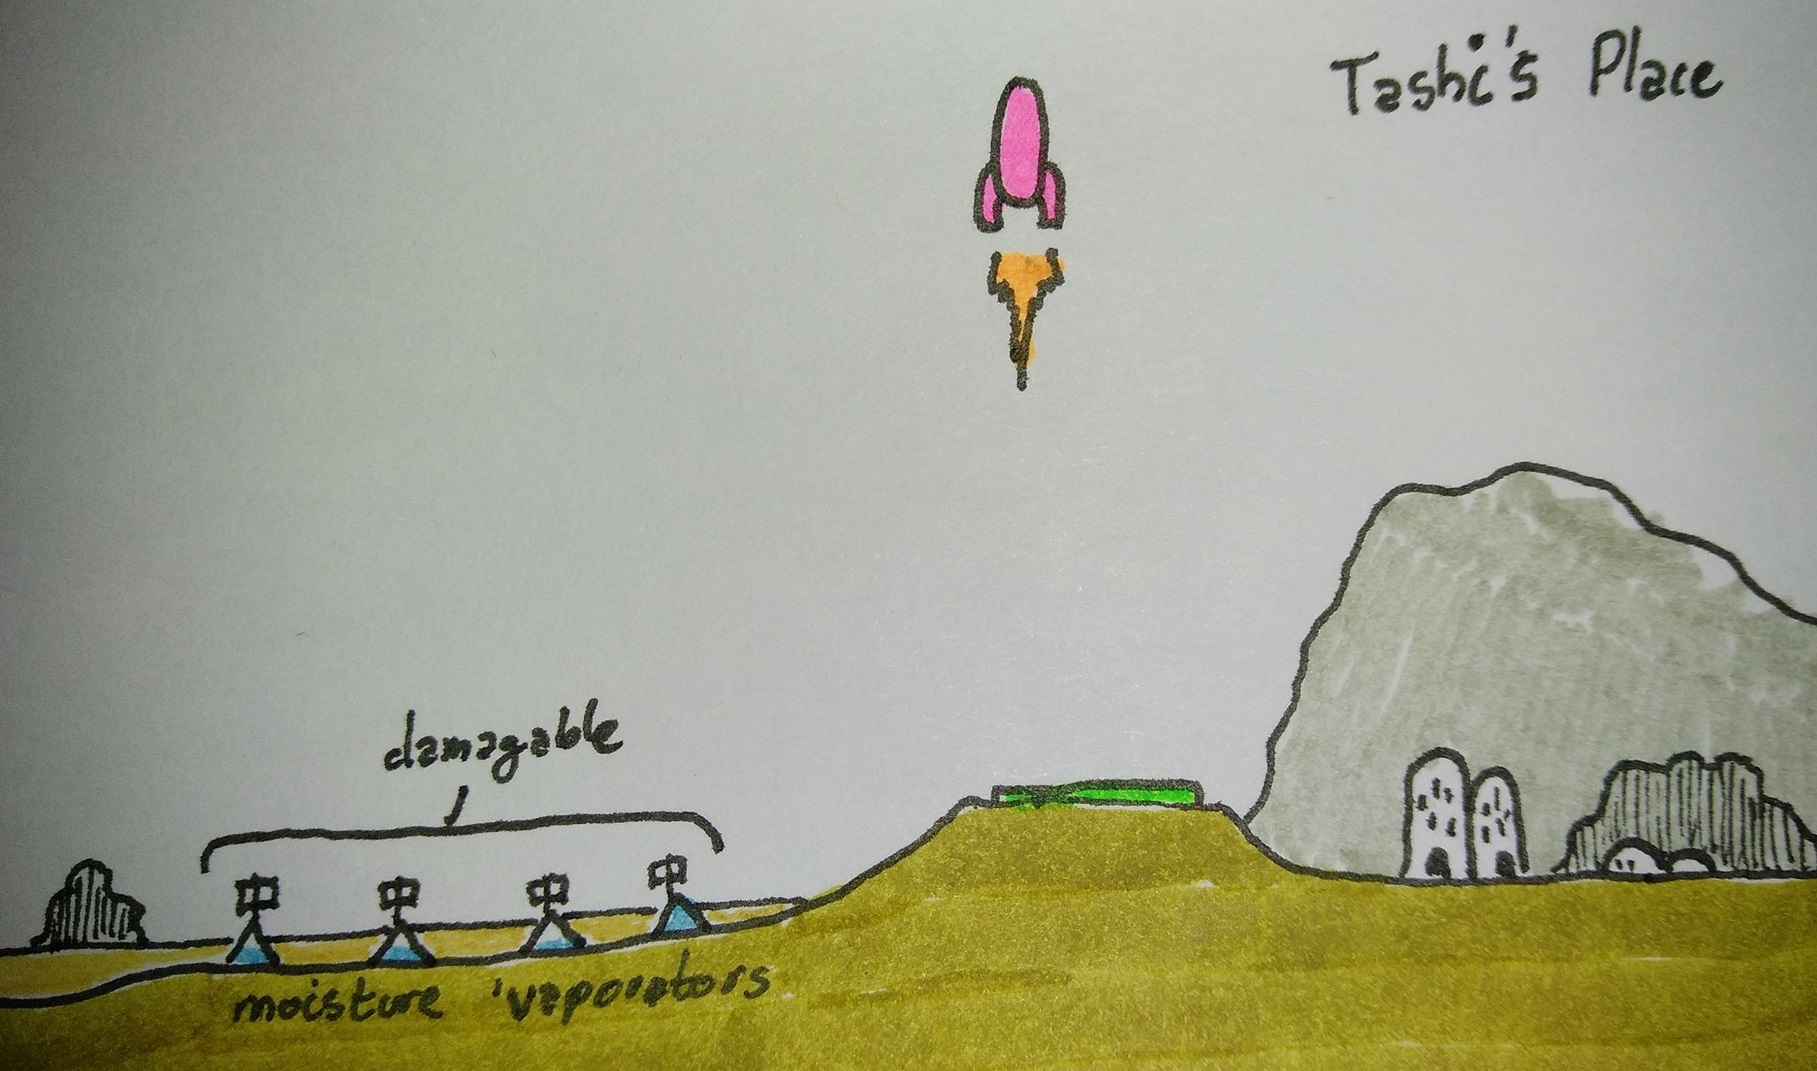 Tashi's Place
damagable
moisture 'vaporators